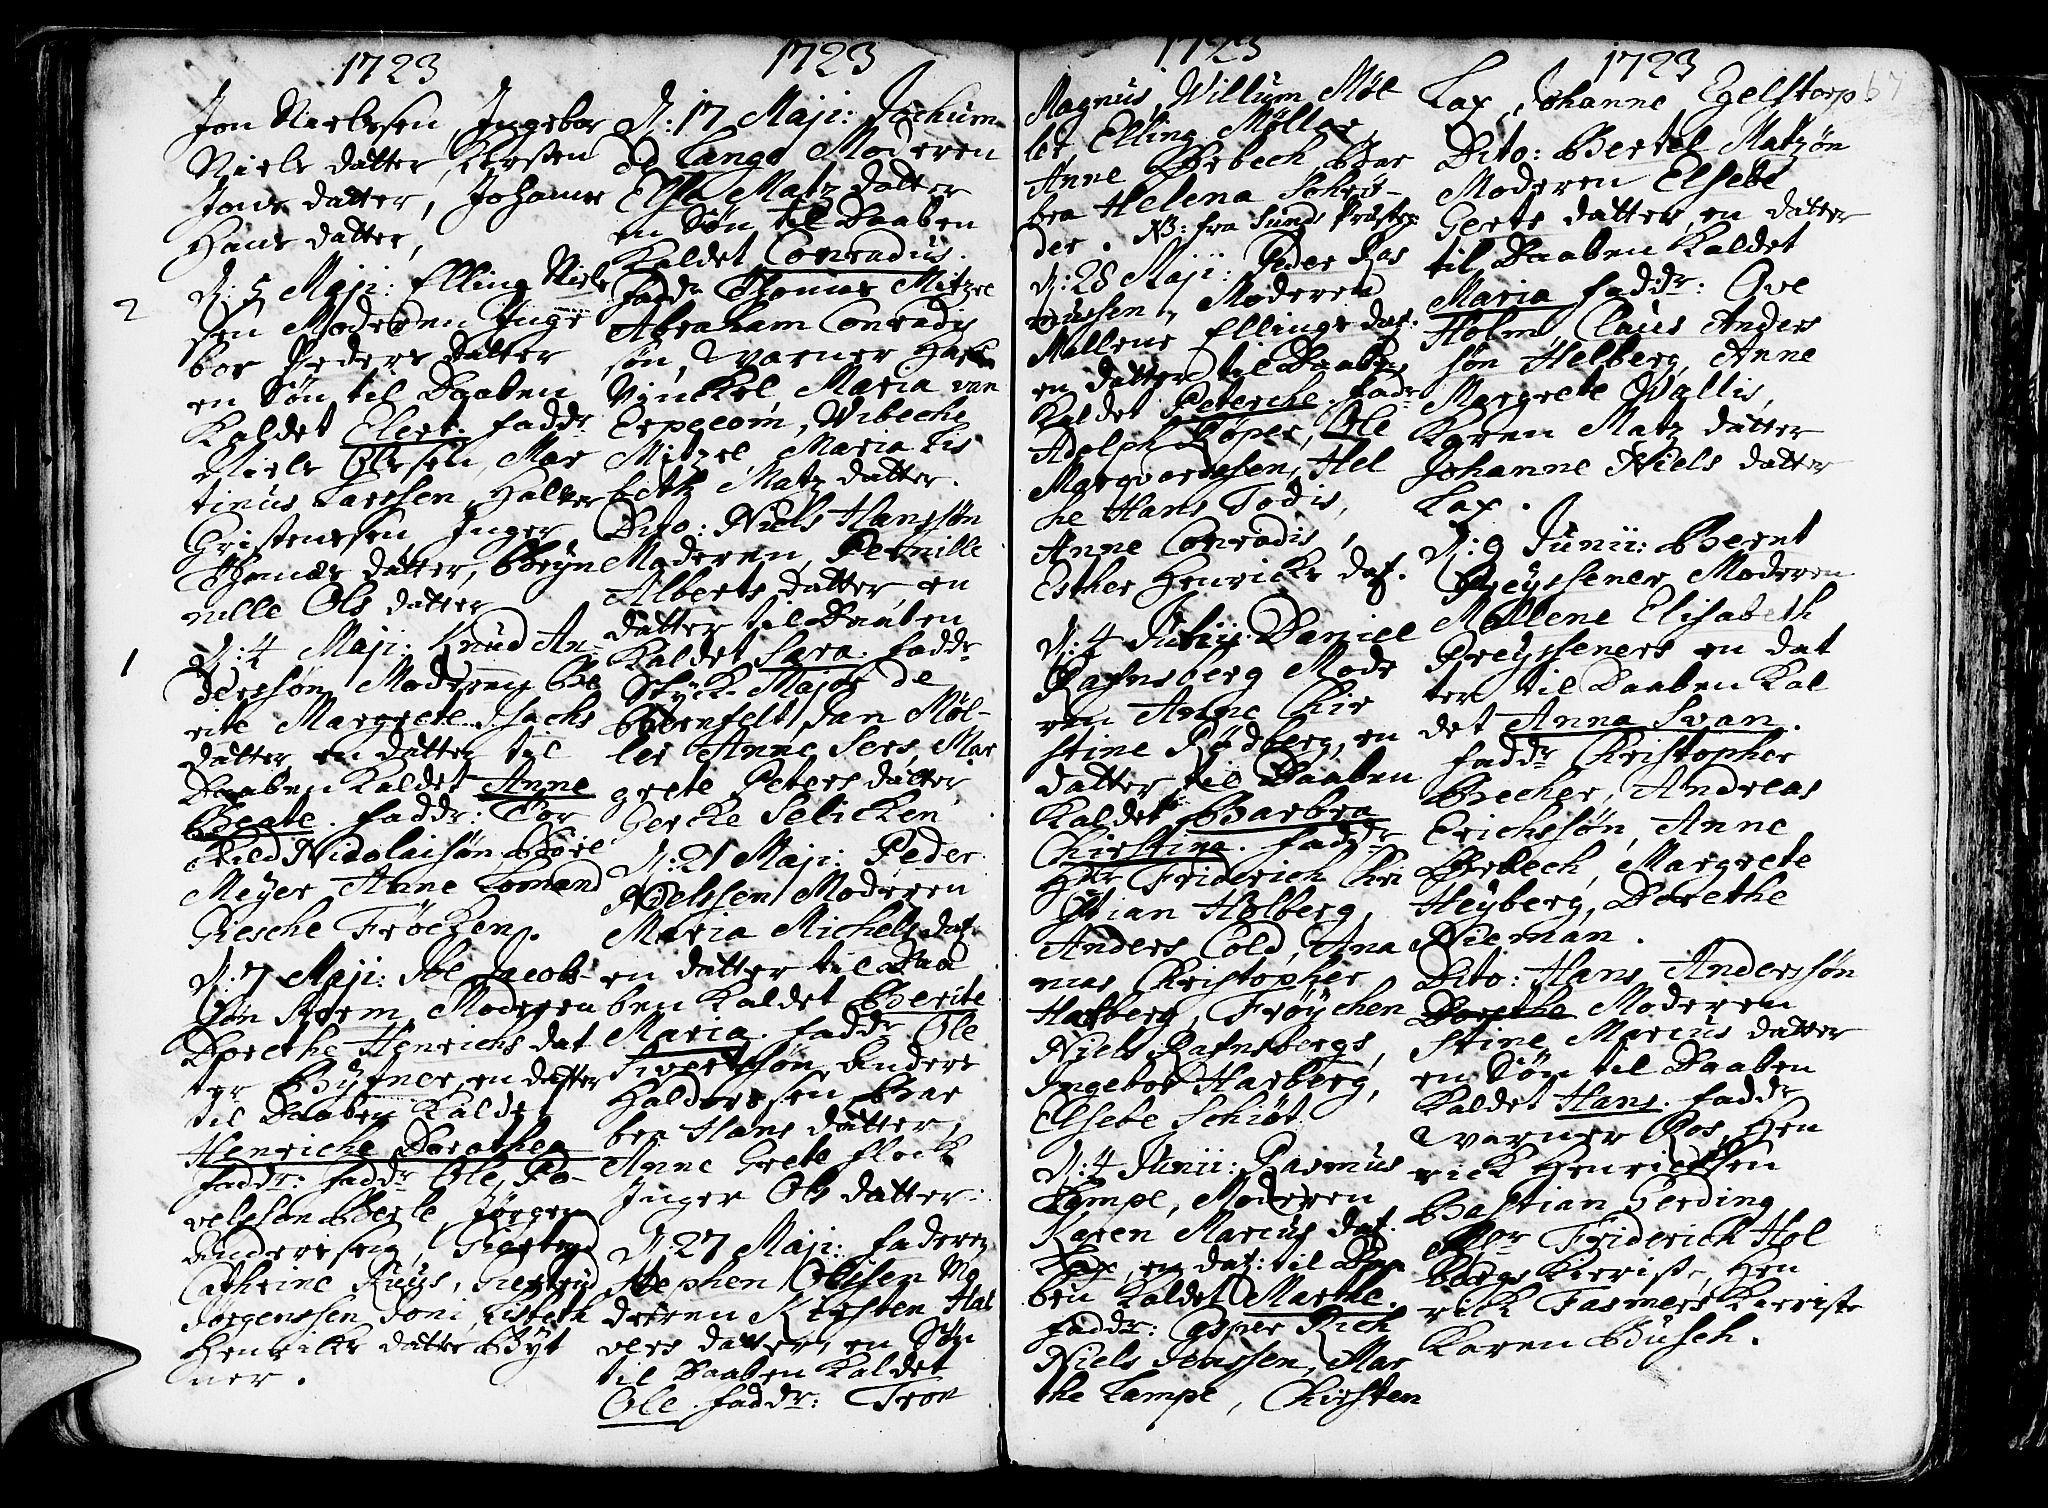 1723
Jon Nielssen, Ingebor
Niels datter, Kirsten
Jons datter, Johanne
Hans datter,
2
D: 5 Maji: Elling Niels
sen Moderen Inge
bor Peders datter
en Søn til Daaben
Kaldet Elert. fadd:r
Niels Olssen, Mar
tinus Larssen, Halter
Cristenssen Inger
Thomas datter, Bryn
nille Ols datter
1
D: 4 Maji: Knud An-
derssøn Moderen Be
rite Margrete Isachs
datter en datter til
Daaben Kaldet Anne
Beate. fadd:r: Tor
kild Nicolaisøn Børe
Meyer Anne Lomand
Giesche Frøczen.
D: 7 Maji: Ibe Jacobs-
søn Korm Moderen
Dorethe Henrichs dat
ter Bytner, en datter
til Daaben Kaldet
Henriche Dorothea
fadd:r: fadd:r Ole Po-
velssøn Berle, Jørgen
Anderssen, Giertrud
Cathrine Ruus, Giertrud
Jørgenssen Joni, Lisbeth
Henriks datter Byt
ner.
1723
D: 17 Maji: Jochum
de Lange Moderen
Elsa Matz datter
en Søn til Daaben
Kaldet Conradus.
fadd:r Thomas Mitzel
Abraham Conradis
søn, Warner Hach
Vinkel, Maria van
Erpecom, Wibeche
Mitzel Maria Lis
beth Matz datter.
Dito: Niels Hanssøn
Moderen, Pernille
Alberts datter, en
datter til Daaben
Kaldet Sara. fadd:r
Styck Major de
Bornfelt, Jan Møl-
ler Anne Sers, Mar
grete Peters datter
Gercke Selicken
D: 21 Maji: Peder
Nielssen Moderen
Maria Michels dat:
en datter til Daa
ben Kaldet Berite
Maria. fadd:r Ole
Siverssøn, Anders
Haldorssen, Bar
bra Hans datter,
Anne Grete flock
Inger Ols datter:
D: 27 Maji: faderen
Stephen Olssen Mo
deren Kirsten Hal
vers datter, en Søn
til Daaben Kaldet
Ole. fadd:r: Tron
1723
Magnus, Willum Møl
ler Elling Møller
Anne Ørbech Bar
bra Helena Schrø-
der. NB: fra Sunds Præstegi:
D: 28 Maji: Peder Ras
mussen, Moderen
Mallene Ellings dat:
en datter til Daaben
Kaldet Peterche. fadd:r
Adolph Røper, Ole
Marqvardssen, Hel
he Hans Todis,
Anne Conradis,
Esther Henricks dat:
D: 4 Junii: Daniel
Rafnsberg Mode
ren Anne Chir
stine Rødberg, en
datter til Daaben
Kaldet Barbra
Chirstina. fadd:r
H:r Friderich Chri
stian Holberg,
Anders Cold, Ana
nias Christopher
Hafberg, Frøychen
Niels Rafnsbergs,
Ingebor Harberg,
Elsebe Schiøt
D: 4 Junii: Rasmus
Lampe, Moderen
Karen Marcus dat:
Lax, en dat: til Daa
ben Kaldet Marthe.
fadd:r: Casper Rich
Niels Jenssen, Mar
the Lampe, Chirsten
1723
67
Lax, Johanne Egelstorp
Dito: Bertel Matzøn
Moderen Elsebe
Geerts datter en datter
til Daaben Kaldet
Maria. fadd:r: Ove
Holm, Claus Anders
søn Helberg, Anne
Margrete Wallis,
Karen Matz datter
Johanne Niels datter
Lax.
D: 9 Junii: Bernt
Greyssener Moderen
Mallene Elisabeth
Greysseners en dat
ter til Daaben Kal
det Anna Svan.
fadd:r Christopher
Becher, Andreas
Erichssøn, Anne
Ørbech, Margrete
Heyberg, Dorethe
Nieman.
Dito: Hans Anderssøn
Dorethe Moderen
Stine Marcus datter
en Søn til Daaben
Kaldet Hans. fadd:r
Warner Ros, Hen
rick Henrickssen
Bastian Gerding
M:r Friderich Hol
bergs Kieriste, Hen
rick Fasmers Kieriste
Karen Busch.